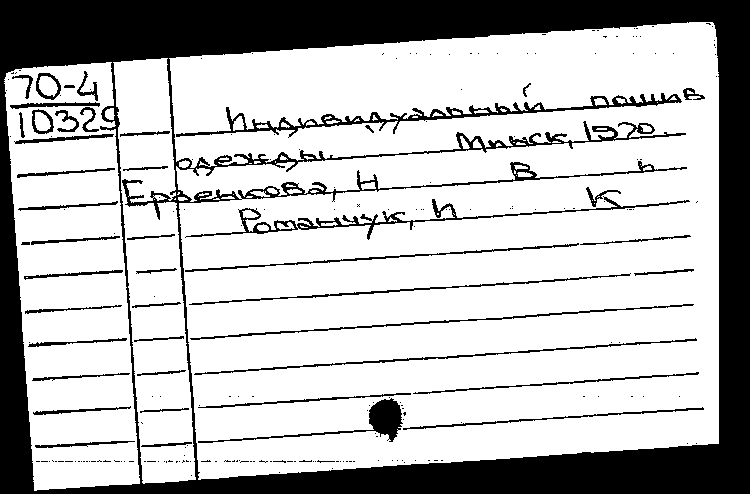 70-4
10329
Индивидуальный пошив
одежды. Минск, 1970.
Ерзенкова, Н В
Романчук, И К